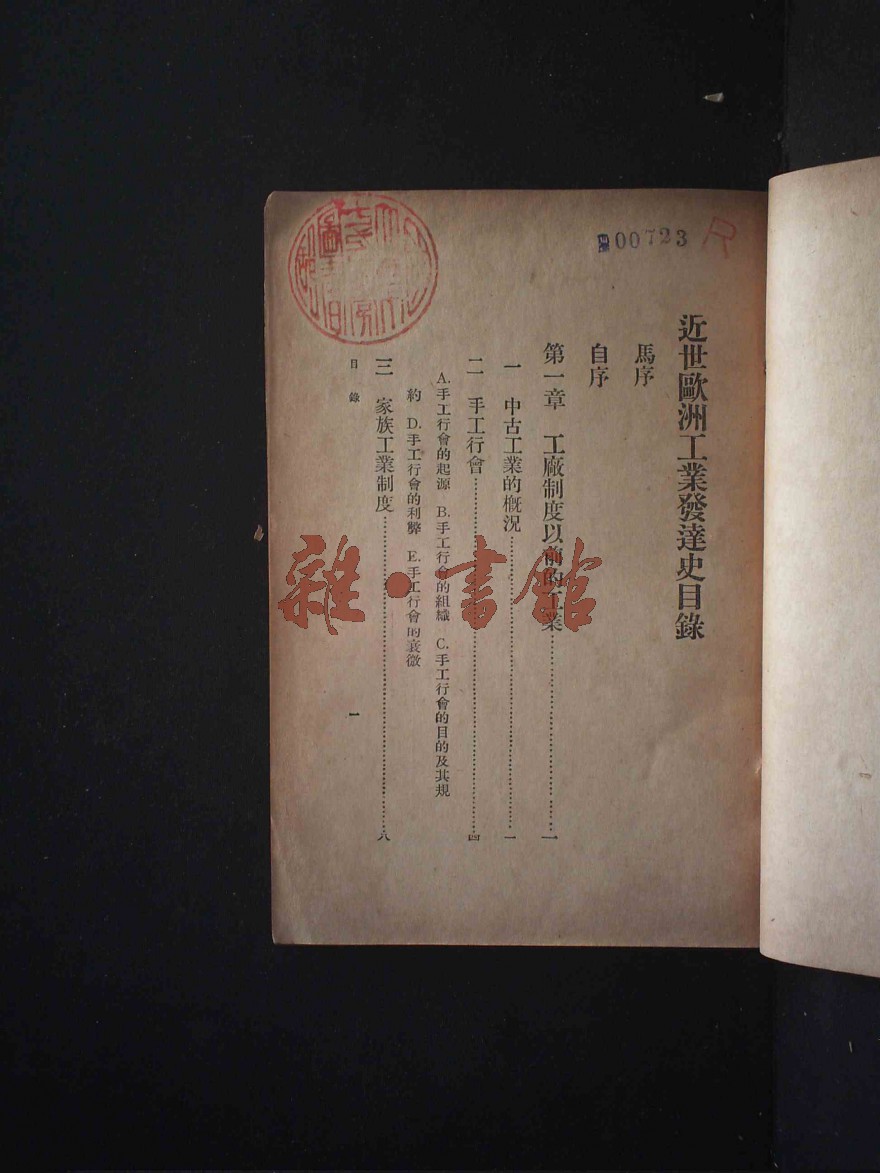 近世歐洲工業發達史目錄
馬序
自序
第一章　工廠制度以前的工業……一
一　中古工業的概況……一
二　手工行會……四
A.手工行會的起源　B.手工行會的組織　C.手工行會的目的及其規
約　D.手工行會的利弊　E.手工行會的衰微
三　家族工業制度……八
目錄　一
00723
R
雜·書館